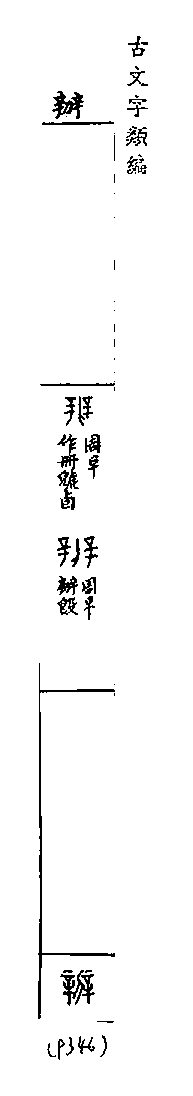 古文字類編
辦
周早
作冊䰧卣
周早
辦𣪘
辦
(P346)